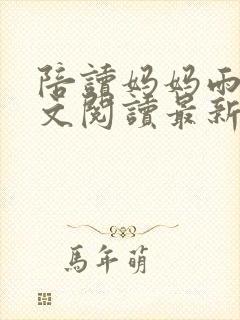 陪讀妈妈雨
文閱讀最新
馬年萌